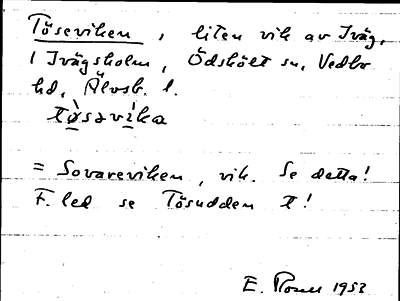 Töseviken, liten vik av Iväg,
i Ivägsholm, Ödskölt sn, Vedbo
hd, Älvsb. l.
tø̀səvìka
= Sovareviken, vik. Se detta!
F. led se Tösudden t!
E. 1952